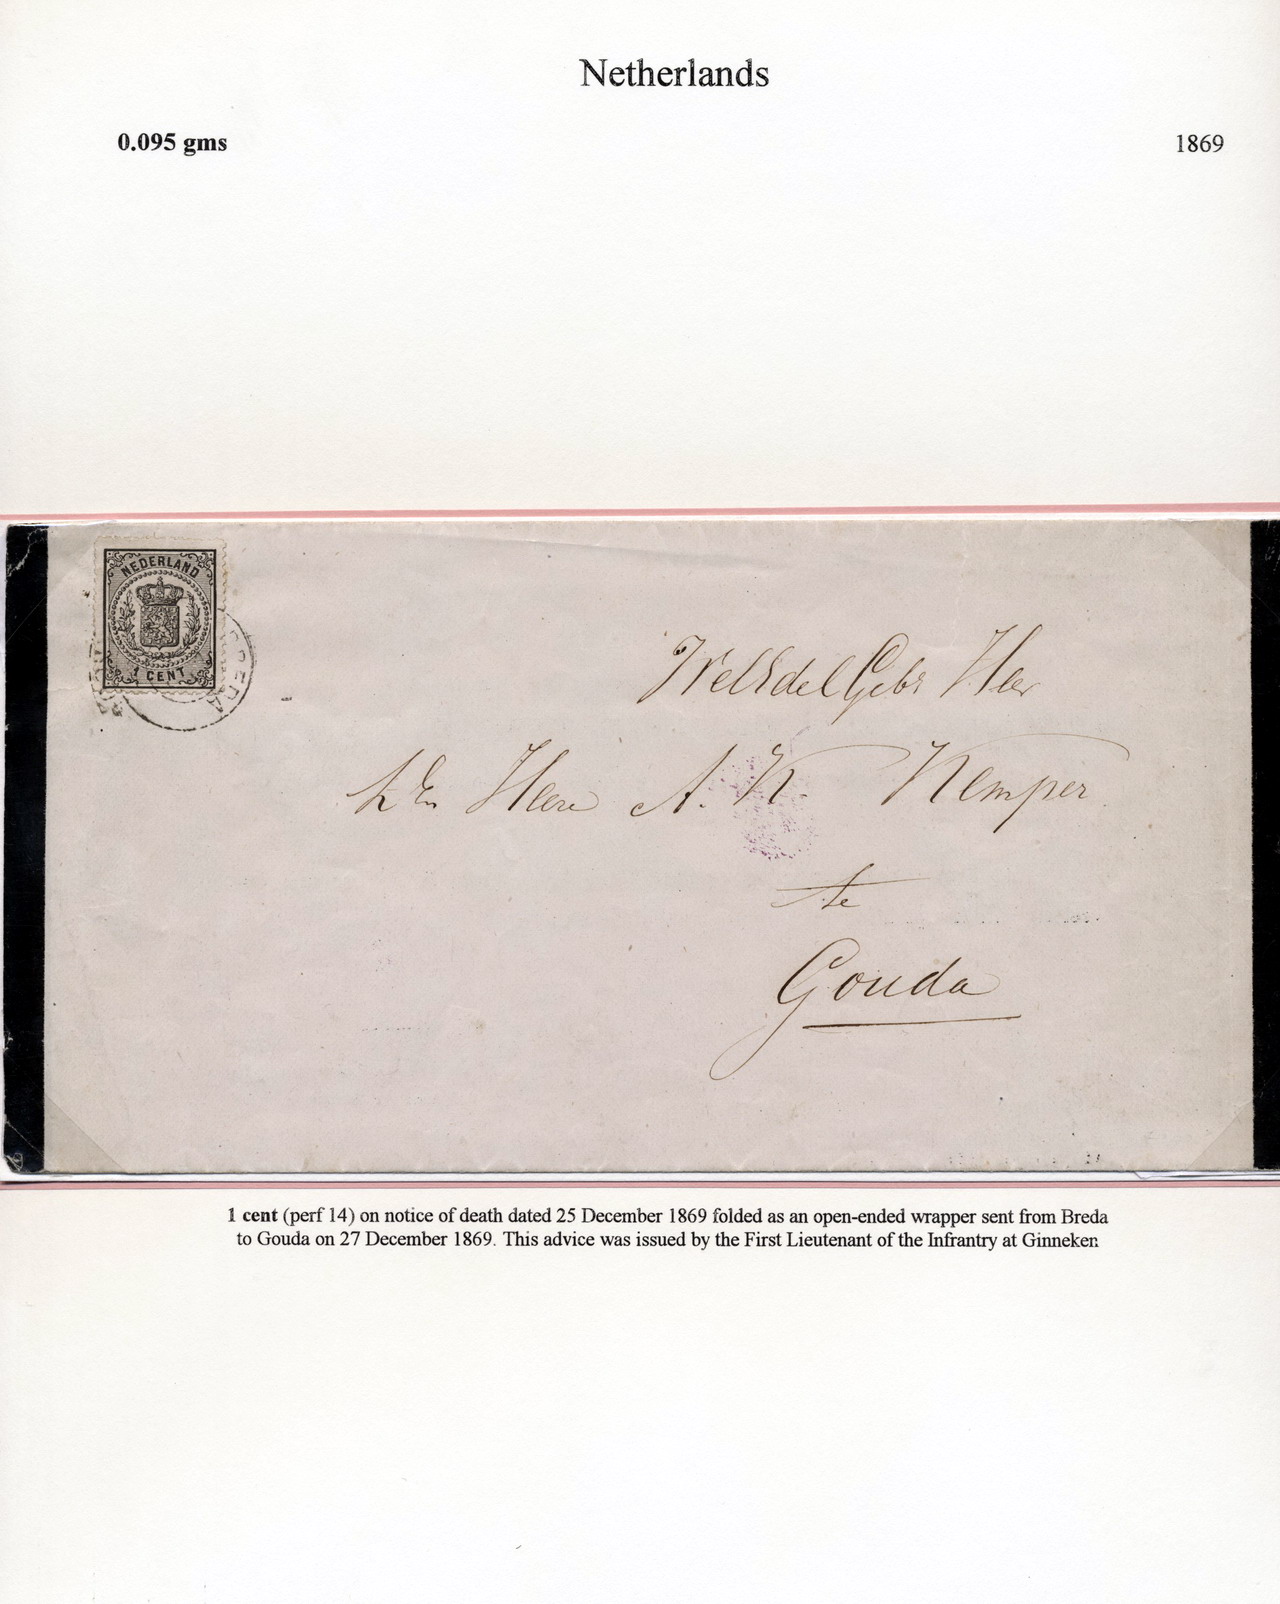 Netherlands
0.095 gms
1869
NEDERLAND
1 CENT
BREDA
WelEdelGebr Heer
Heere A. K Kemper
te
Gouda
1 cent (perf 14) on notice of death dated 25 December 1869 folded as an open-ended wrapper sent from Breda
to Gouda on 27 December 1869. This advice was issued by the First Lieutenant of the Infrantry at Ginneken